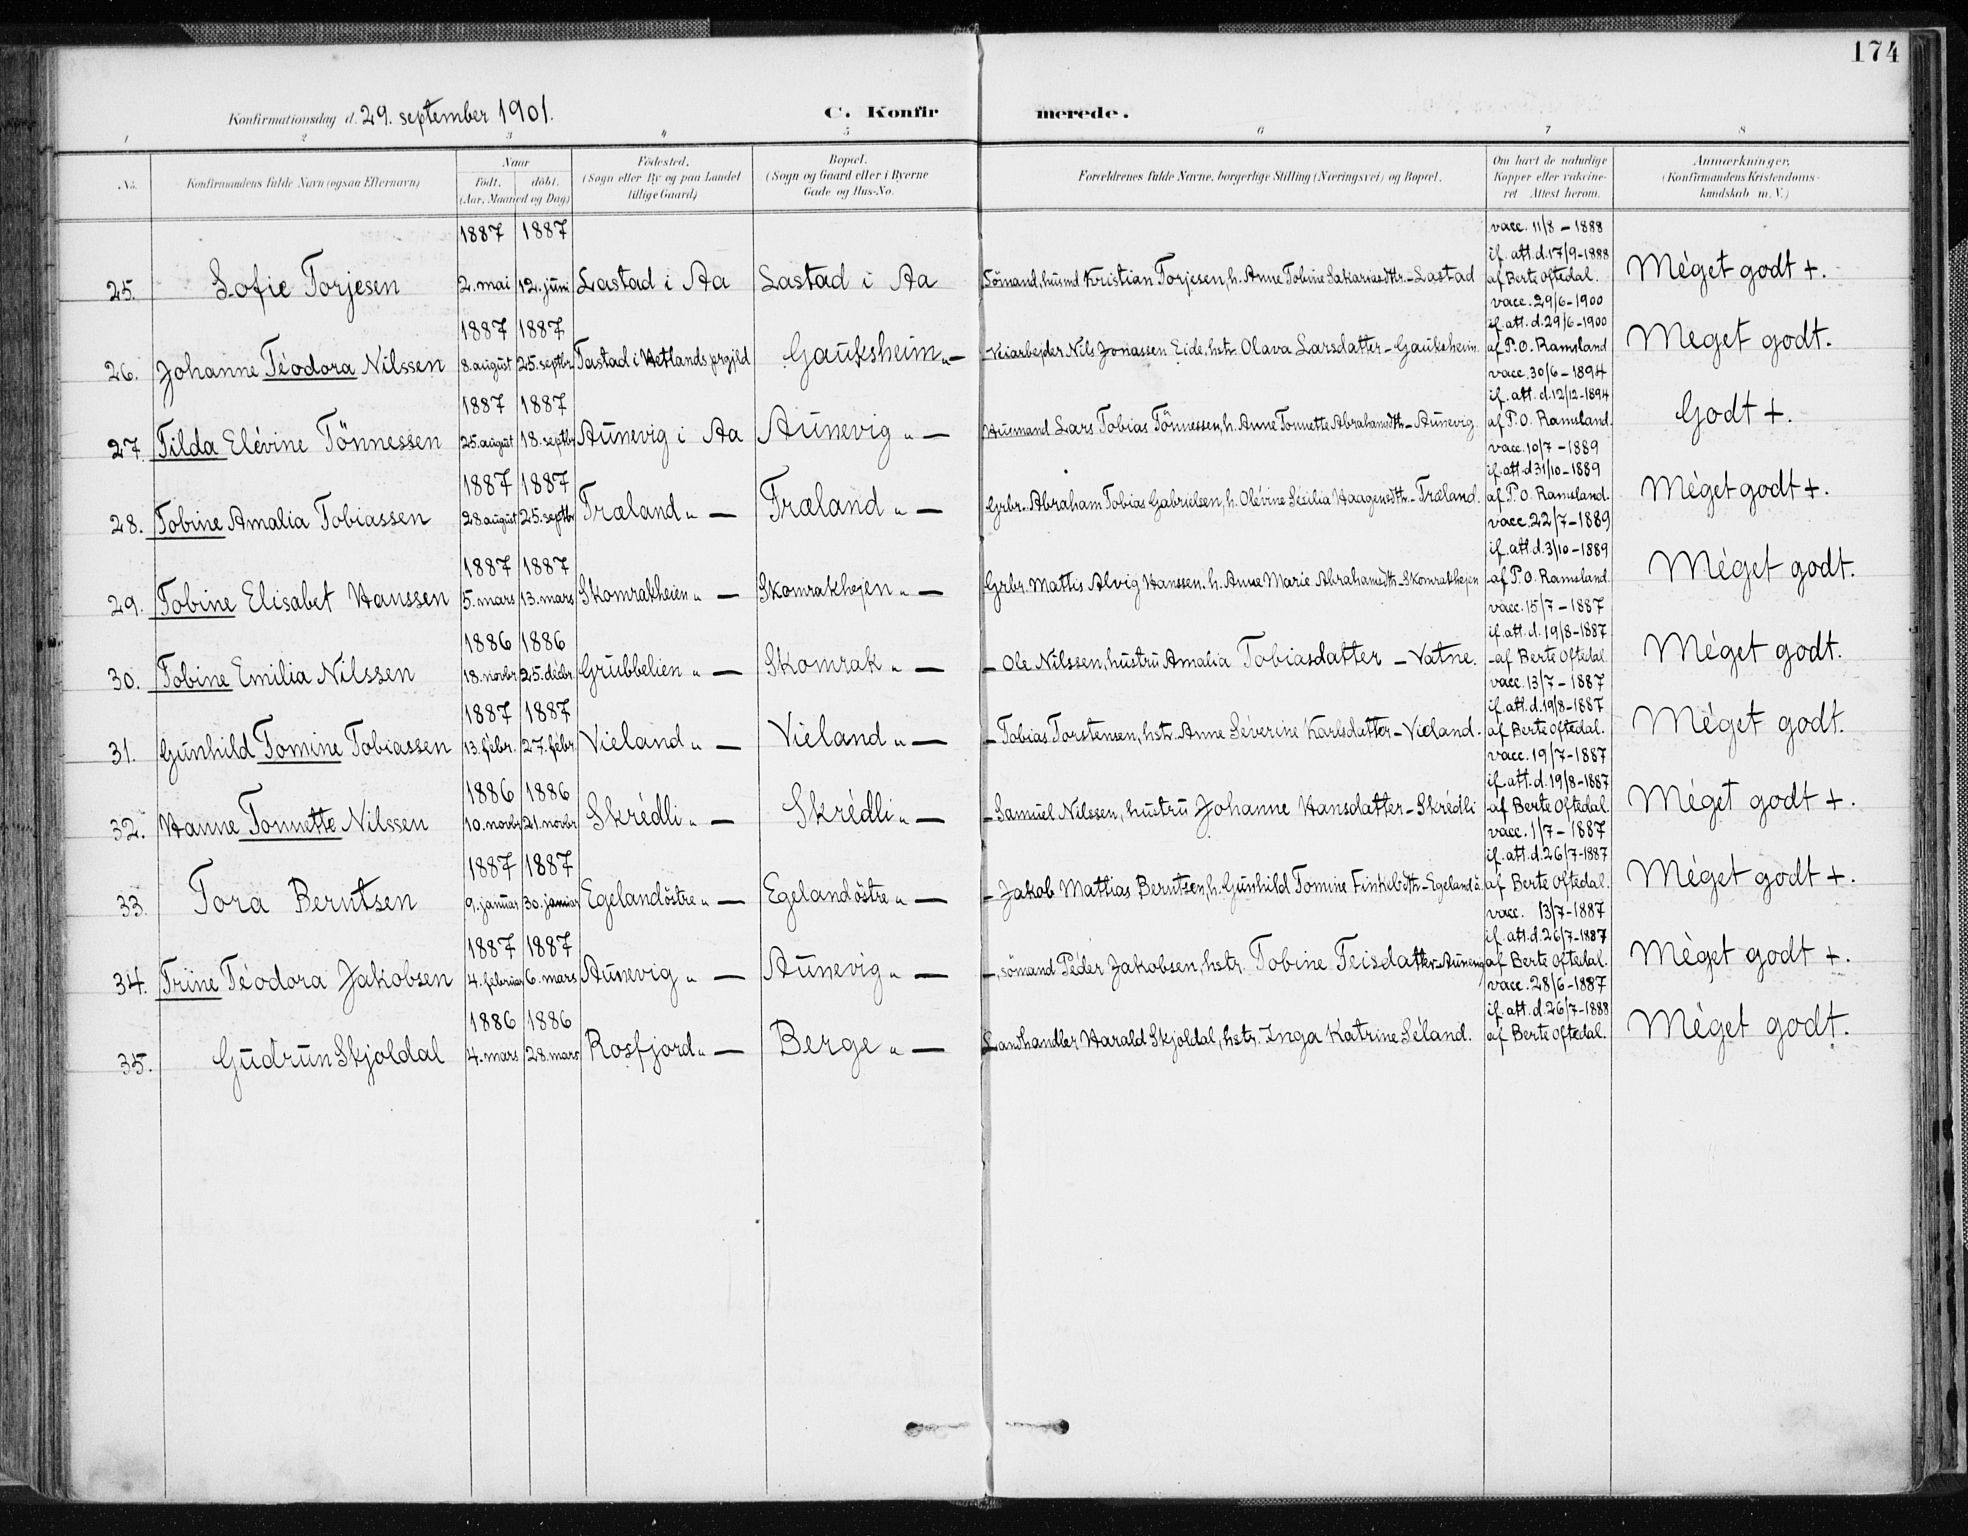 174
Konfirmationsdag d. 29. september 1901. C. Konfirmerede.
1 2 3 4 5 6 7 8
No. Konfirmandens fulde Navn (ogsaa Efternavn) Naar födt. döbt. (Aar, Maaned og Dag) Födested. (Sogn eller By og paa Landet tillige Gaard) Bopæl. (Sogn og Gaard eller i Byerne Gade og Hus-No. Forældrenes fulde Navne, borgerlige Stilling (Næringsvei) og Bopæl. Om havt de naturlige Kopper eller vakcineret Attest herom. Anmærkninger. (Konfirmandens Kristendomskundskab m. V.)
1887 1887 vacc. 11/8 - 1888
if. att. d. 17/9-1888
25. Sofie Torjesen 2. mai 12. juni Lastad i Aa Lastad i Aa Sömand, husmd Kristian Torjesen, h. Anne Tobine Sakariasdttr. - Lastad af Berte Oftedal. Méget godt +.
vacc. 29/6-1900
1887 1887 if. att. d. 29/6-1900
26. Johanne Téodora Nilssen 8. august 25. septbr. Tastad i Hetlands prgjld Gauksheim „ — - Veiarbejder Nils Jonassen Eide, hstr. Olava Larsdatter - Gauksheim. af P. O. Ramsland Meget godt.
vacc. 30/6-1894
1887 1887 if. att. d. 12/12-1894
27. Tilda Elévine Tönnessen 25. august 18. septbr Aunevig i Aa Aunevig „ — Husmand Lars Tobias Tönnessen, h. Anne Tonnette Abrahamsdtr. - Aunevig af P. O. Ramsland. Godt +.
vacc. 10/7 - 1889
1887 1887 if. att. d 31/10-1889
28. Tobine Amalia Tobiassen 28. august 25. septbr Træland „ — Træland „ — Grbr. Abraham Tobias Gabrielsen, h. Olévine Sésilia Haagensdtr. - Træland. af P. O. Ramsland. Méget godt +.
vacc. 22/7-1889
1887 1887 if. att. d. 3/10-1889
29. Tobine Elisabet Hanssen 5. mars 13. mars Skomrakheien „ — Skomrakhejen „ — Grbr. Mattis Alvig Hanssen, h. Anne Marie Abrahamsdtr - Skomrakhejen - af P. O. Ramsland. Méget godt.
vacc. 15/7 - 1887
1886 1886 if. att. d. 19/8-1887
30. Tobine Emilia Nilssen 18. novbr 25. décbr. Grubbelien „ — Skomrak „ — - Ole Nilssen, hustru Amalia Tobiasdatter - Vatne. - af Berte Oftedal. Méget godt.
vacc. 13/7 - 1887
1887 1887 if. att. d. 19/8-1887
31. Gunhild Tomine Tobiassen 13. febr. 27. febr. Vieland „ — Vieland „ — - Tobias Torstensen, hstr. Anne Séverine Karlsdatter - Vieland. af Berte Oftedal. Méget godt.
vacc. 19/7-1887
1886 1886 if. att. d. 19/8-1887
32. Hanne Tonnette Nilssen 10. novbr 21. novbr Skrédli „ — Skrédli „ — - Samuel Nilssen, hustru Johanne Hansdatter - Skrédli - af Berte Oftedal Méget godt +.
vacc. 1/7 - 1887
1887 1887 if. att. d. 26/7-1887
33. Tora Berntsen 9. januar 30. januar Egeland östre „ — Egeland östre „ — - Jakob Mattias Berntsen, h. Gunhild Tomine Finkelsdtr - Egeland ö. af Berte Oftedal. Méget godt +.
vacc. 13/7-1887
1887 1887 if. att. d. 26/7-1887
34. Trine Téodora Jakobsen 4. februar 6. mars Aunevig „ — Aunevig „ — -, sömand Péder Jakobsen, hstr. Tobine Teisdatter - Aunevig af Berte Oftedal. Méget godt +.
vacc. 28/6-1887
1886 1886 if. att. d. 26/7-1888
35. Gudrun Skjoldal 4. mars 28. mars Rosfjord „ — Berge „ — Landhandler Harald Skjoldal, hstr. Inga Katrine Séland. af Berte Oftedal. Méget godt.